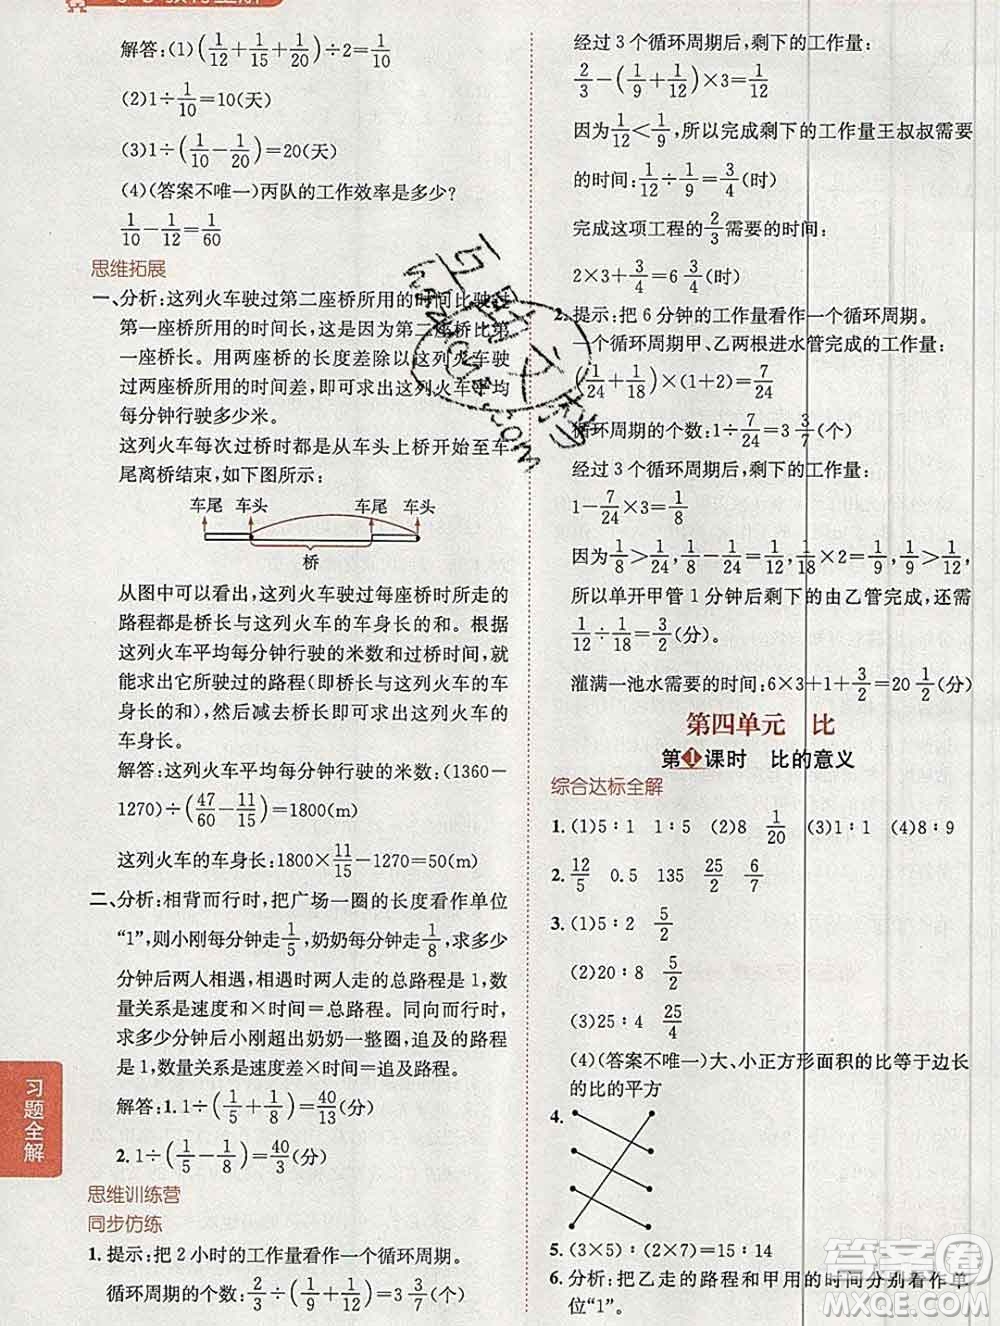 解答:(1)(1/12+1/15+1/20)÷2=1/10
(2)1÷1/10=10(天)
(3)1÷(1/10-1/20)=20(天)
(4)(答案不唯一)丙队的工作效率是多少?
1/10-1/12=1/60
思维拓展
一、分析:这列火车驶过第二座桥所用的时间比驶过
第一座桥所用的时间长,这是因为第二座桥比第
一座桥长。用两座桥的长度差除以这列火车驶
过两座桥所用的时间差,即可求出这列火车平均
每分钟行驶多少米。
这列火车每次过桥时都是从车头上桥开始至车
尾离桥结束,如下图所示:
车尾 车头 车尾 车头
桥
从图中可以看出,这列火车驶过每座桥时所走的
路程都是桥长与这列火车的车身长的和。根据
这列火车平均每分钟行驶的米数和过桥时间,就
能求出它所驶过的路程(即桥长与这列火车车身
长的和),然后减去桥长即可求出这列火车的车
身长。
解答:这列火车平均每分钟行驶的米数:(1360-
1270)÷(47/60-11/15)=1800(m)
这列火车的车身长:1800×11/15-1270=50(m)
二、分析:相背而行时,把广场一圈的长度看作单位
“1”,则小刚每分钟走1/5,奶奶每分钟走1/8,求多少
分钟后两人相遇,相遇时两人走的总路程是1,数
量关系是速度和×时间=总路程。同向而行时,
求多少分钟后小刚超出奶奶一整圈,追及的路程
是1,数量关系是速度差×时间=追及路程。
解答:1.1÷(1/5+1/8)=40/13(分)
2.1÷(1/5-1/8)=40/3(分)
思维训练营
同步仿练
1.提示:把2小时的工作量看作一个循环周期。
循环周期的个数:2/3÷(1/9+1/12)=3 3/7(个)
习题全解
经过3个循环周期后,剩下的工作量:
2/3-(1/9+1/12)×3=1/12
因为1/12<1/9,所以完成剩下的工作量王叔叔需要
的时间:1/12÷1/9=3/4(时)
完成这项工程的2/3需要的时间:
2×3+3/4=6 3/4(时)
2.提示:把6分钟的工作量看作一个循环周期。
一个循环周期甲、乙两根进水管完成的工作量:
(1/24+1/18)×(1+2)=7/24
循环周期的个数:1÷7/24=3 3/7(个)
经过3个循环周期后,剩下的工作量:
1-7/24×3=1/8
因为1/8>1/24,1/8>1/18,1/18×2=1/9,1/8>1/9,
所以单开甲管1分钟后剩下的由乙管完成,还需
1/12÷1/18=3/2(分)。
灌满一池水需要的时间:6×3+1+3/2=20 1/2(分)
第四单元 比
第1课时 比的意义
综合达标全解
1.(1)5∶1 1∶5 (2)8 1/20 (3)1∶1 (4)8∶9
2. 12/5 0.5 135 25/2 6/7
3.(1)5∶2 5/2
(2)20∶8 5/2
(3)25∶4 25/4
(4)(答案不唯一)大、小正方形面积的比等于边长
的比的平方
4.
5.(3×5)∶(2×7)=15∶14
6.分析:把乙走的路程和甲用的时间分别看作单
位“1”。
答案圈
MXQE.COM